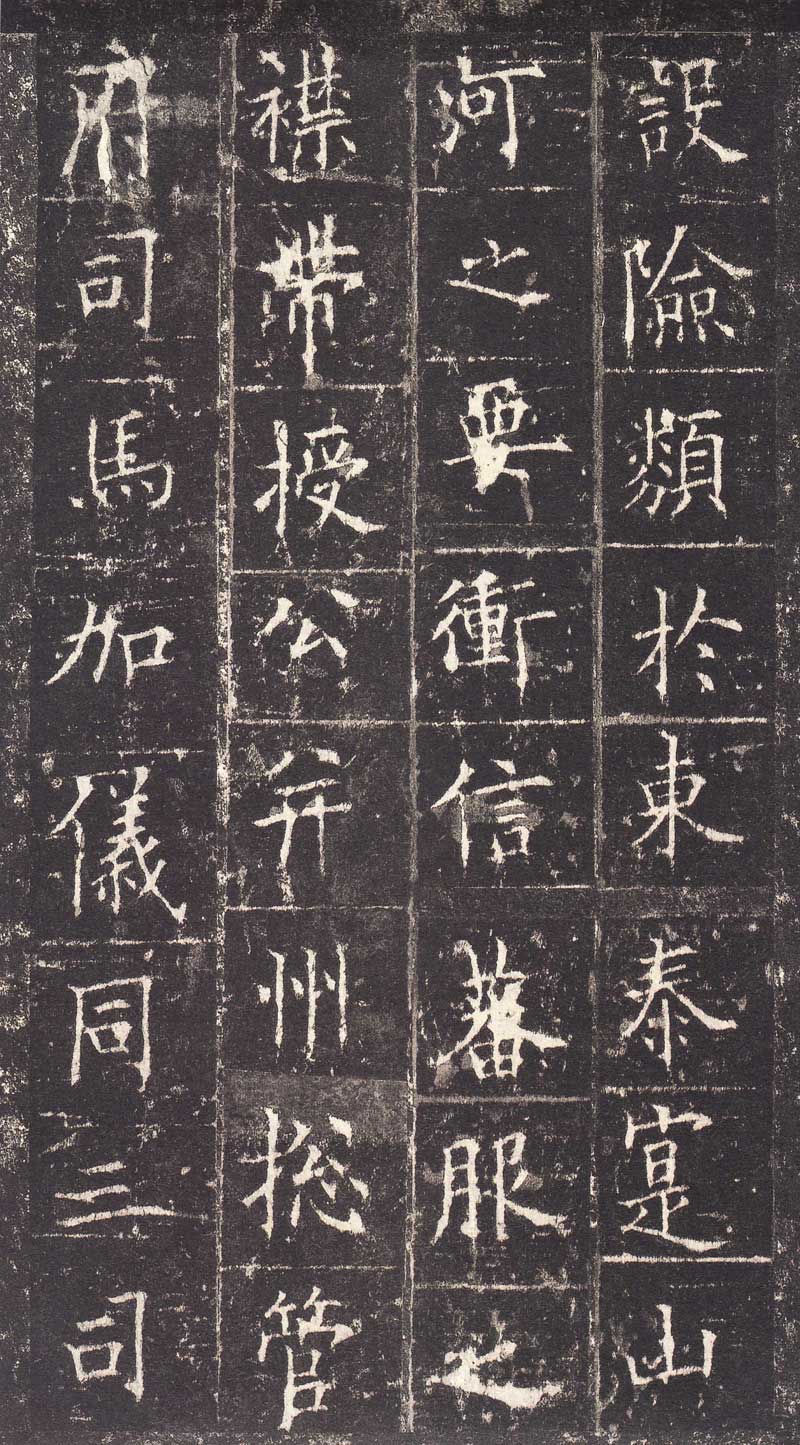 設險類於東泰寔山
河之要衝信蕃服之
襟帶授公并州捴管
府司馬加儀同三司